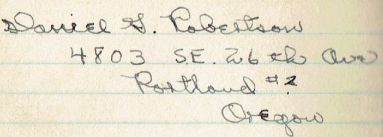 Daniel G. Robertson
4803 S.E. 26 th Ave
Portland #2
Oregon